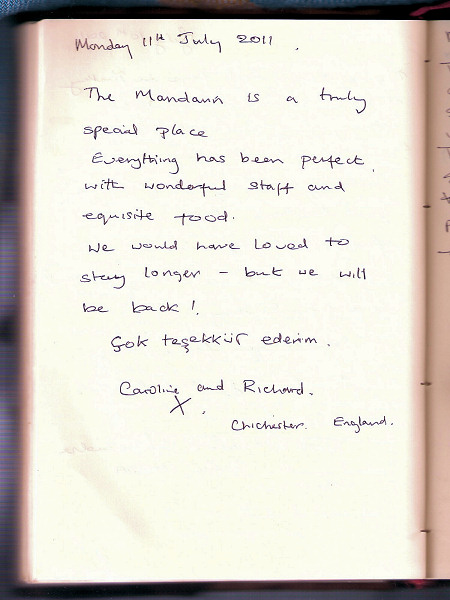 Monday 11th July 2011.
The Mandarin is a truly
special place
Everything has been perfect,
with wonderful staff and
equisite food.
We would have loved to
stay longer - but we will
be back!
Çok teşekkür ederim.
Caroline and Richard.
X.
Chichester. England.